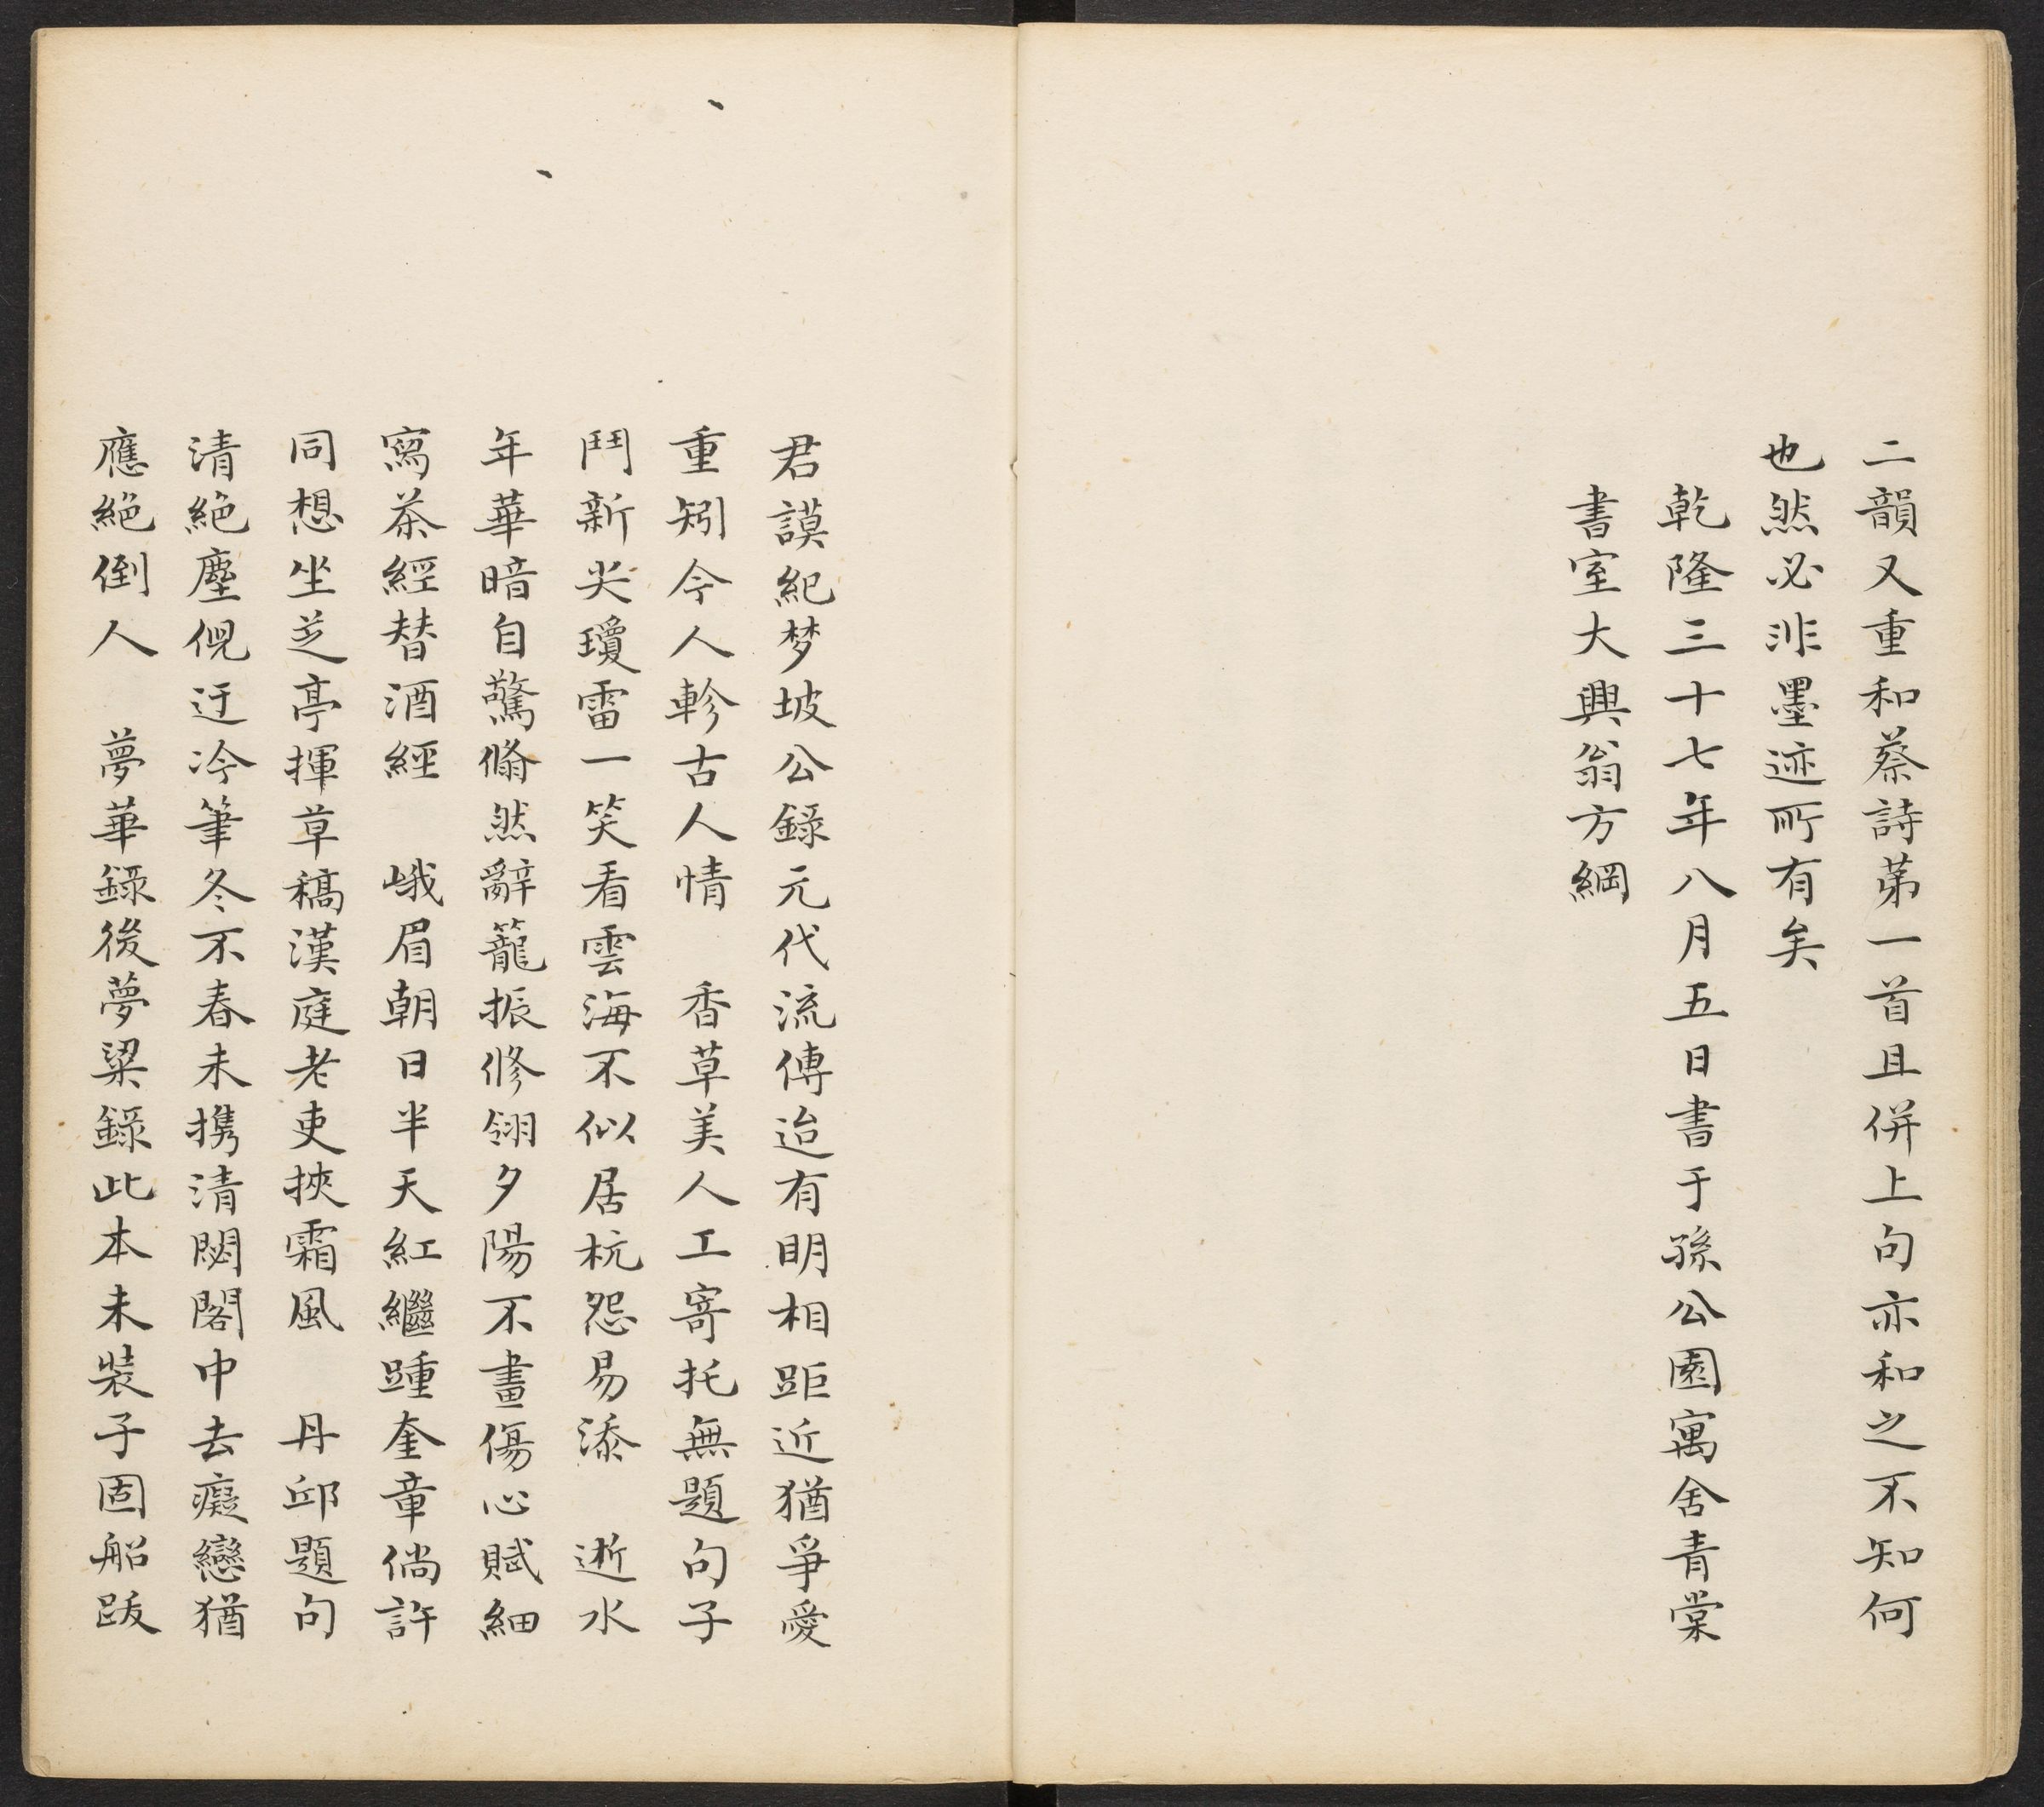 二韻又重和蔡詩苐一首且併上句亦和之不知何
也然必非墨迹所有矣
乾隆三十七年八月五日書于孫公園寓舍青棠
書室大興翁方綱
君謨紀梦坡公錄元代流傳迨有明相距近猶爭愛
重矧今人軫古人情　香草美人工寄托無題句子
鬥新尖瓊雷一笑看雲海不似居杭怨易添　逝水
年華暗自驚翛然辭籠振修翎夕陽不畫傷心賦細
寫茶經替酒經　峨眉朝日半天紅繼踵奎章倘許
同想坐芝亭揮草稿漢庭老吏挾霜風　丹邱題句
清絶塵倪迂冷筆冬不春未携清閟閣中去癡戀猶
應絶倒人　夢華錄後夢粱錄此本未裝子固船跋